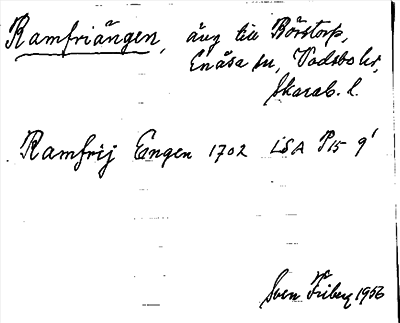 Ramfriängen, äng till Börstorp,
Enåsa sn, Vadsbo hd,
Skarab. l.
Ramfrij Engen 1702 LSA P15 9'
Sven Friberg 1956